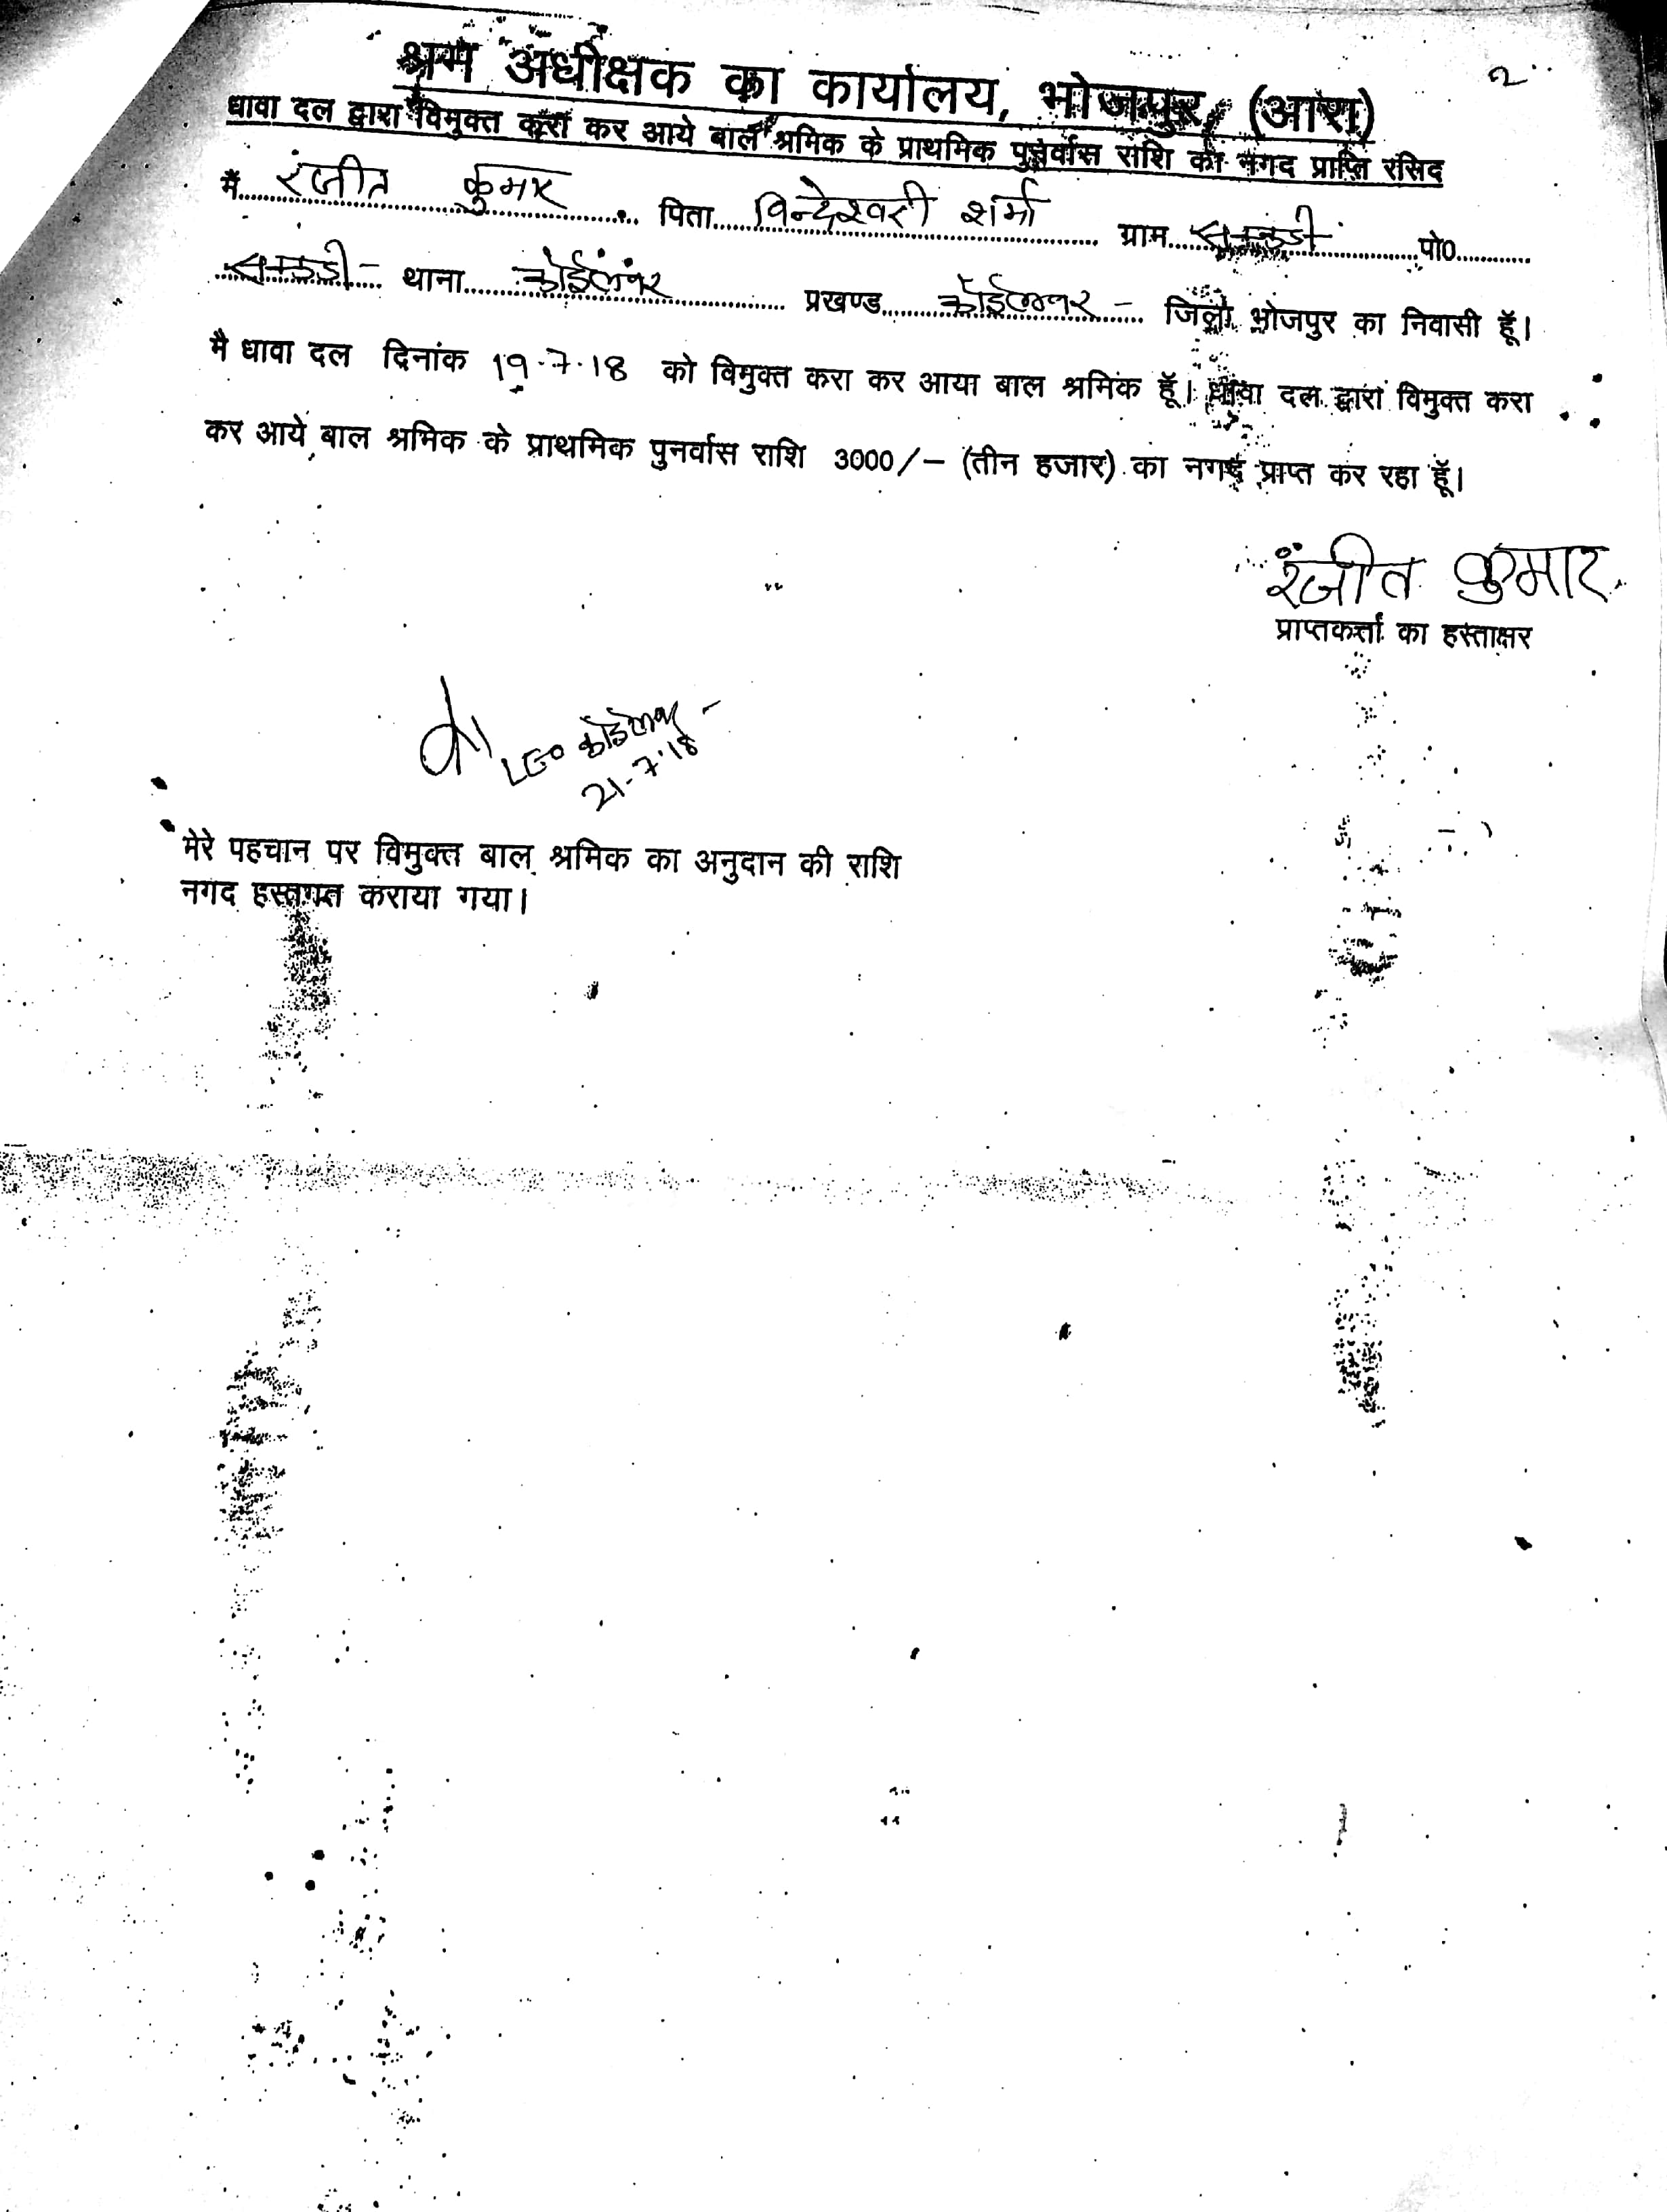 २
श्रम अधीक्षक का कार्यालय, भोजपुर, (आरा)
धावा दल द्वारा विमुक्त करा कर आये बाल श्रमिक के प्राथमिक पुनर्वास राशि का नगद प्राप्ति रसिद
मैं रंजीत कुमार पिता विन्देश्वरी शर्मा ग्राम पो0
थाना कोईलवर प्रखण्ड कोईलवर - जिला भोजपुर का निवासी हूँ।
मै धावा दल दिनांक 19.7.18 को विमुक्त करा कर आया बाल श्रमिक हूँ। धावा दल द्वारा विमुक्त करा
कर आये बाल श्रमिक के प्राथमिक पुनर्वास राशि 3000/– (तीन हजार) का नगद प्राप्त कर रहा हूँ।
रंजीत कुमार
प्राप्तकर्त्ता का हस्ताक्षर
LEO कोईलवर -
21-7-18
मेरे पहचान पर विमुक्त बाल श्रमिक का अनुदान की राशि
नगद हस्तगत कराया गया।